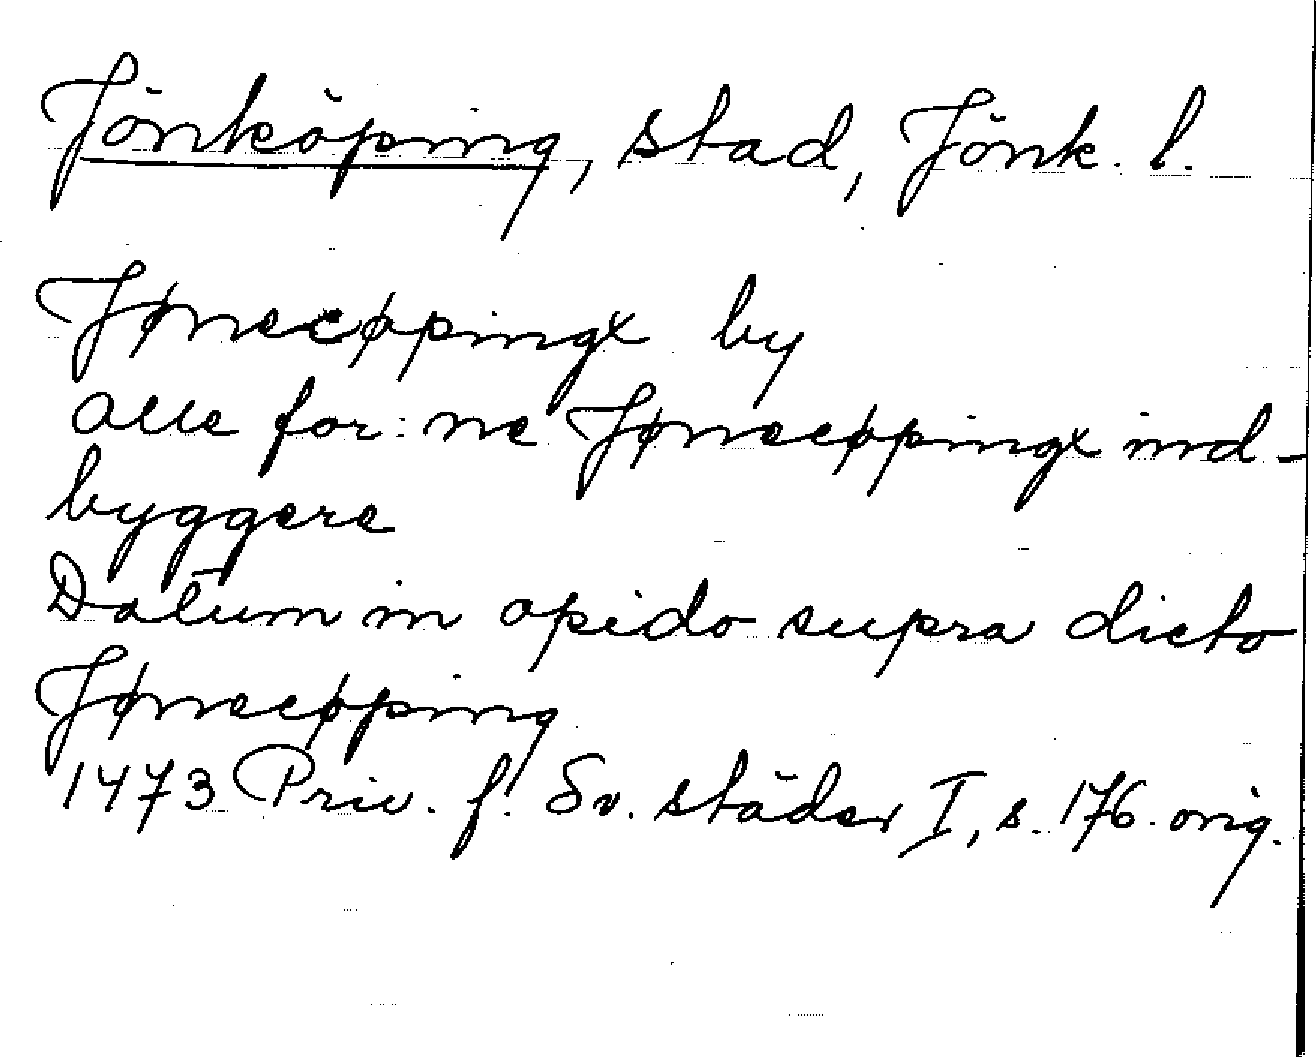 Jönköping, stad, Jönk. l.
Jønecøpingx by
alle for:ne Jønecøpingx ind-
byggere
Datum in opido supra dicto
Jønecøping
1473 Priv. f. Sv. städer I, s. 176. orig.